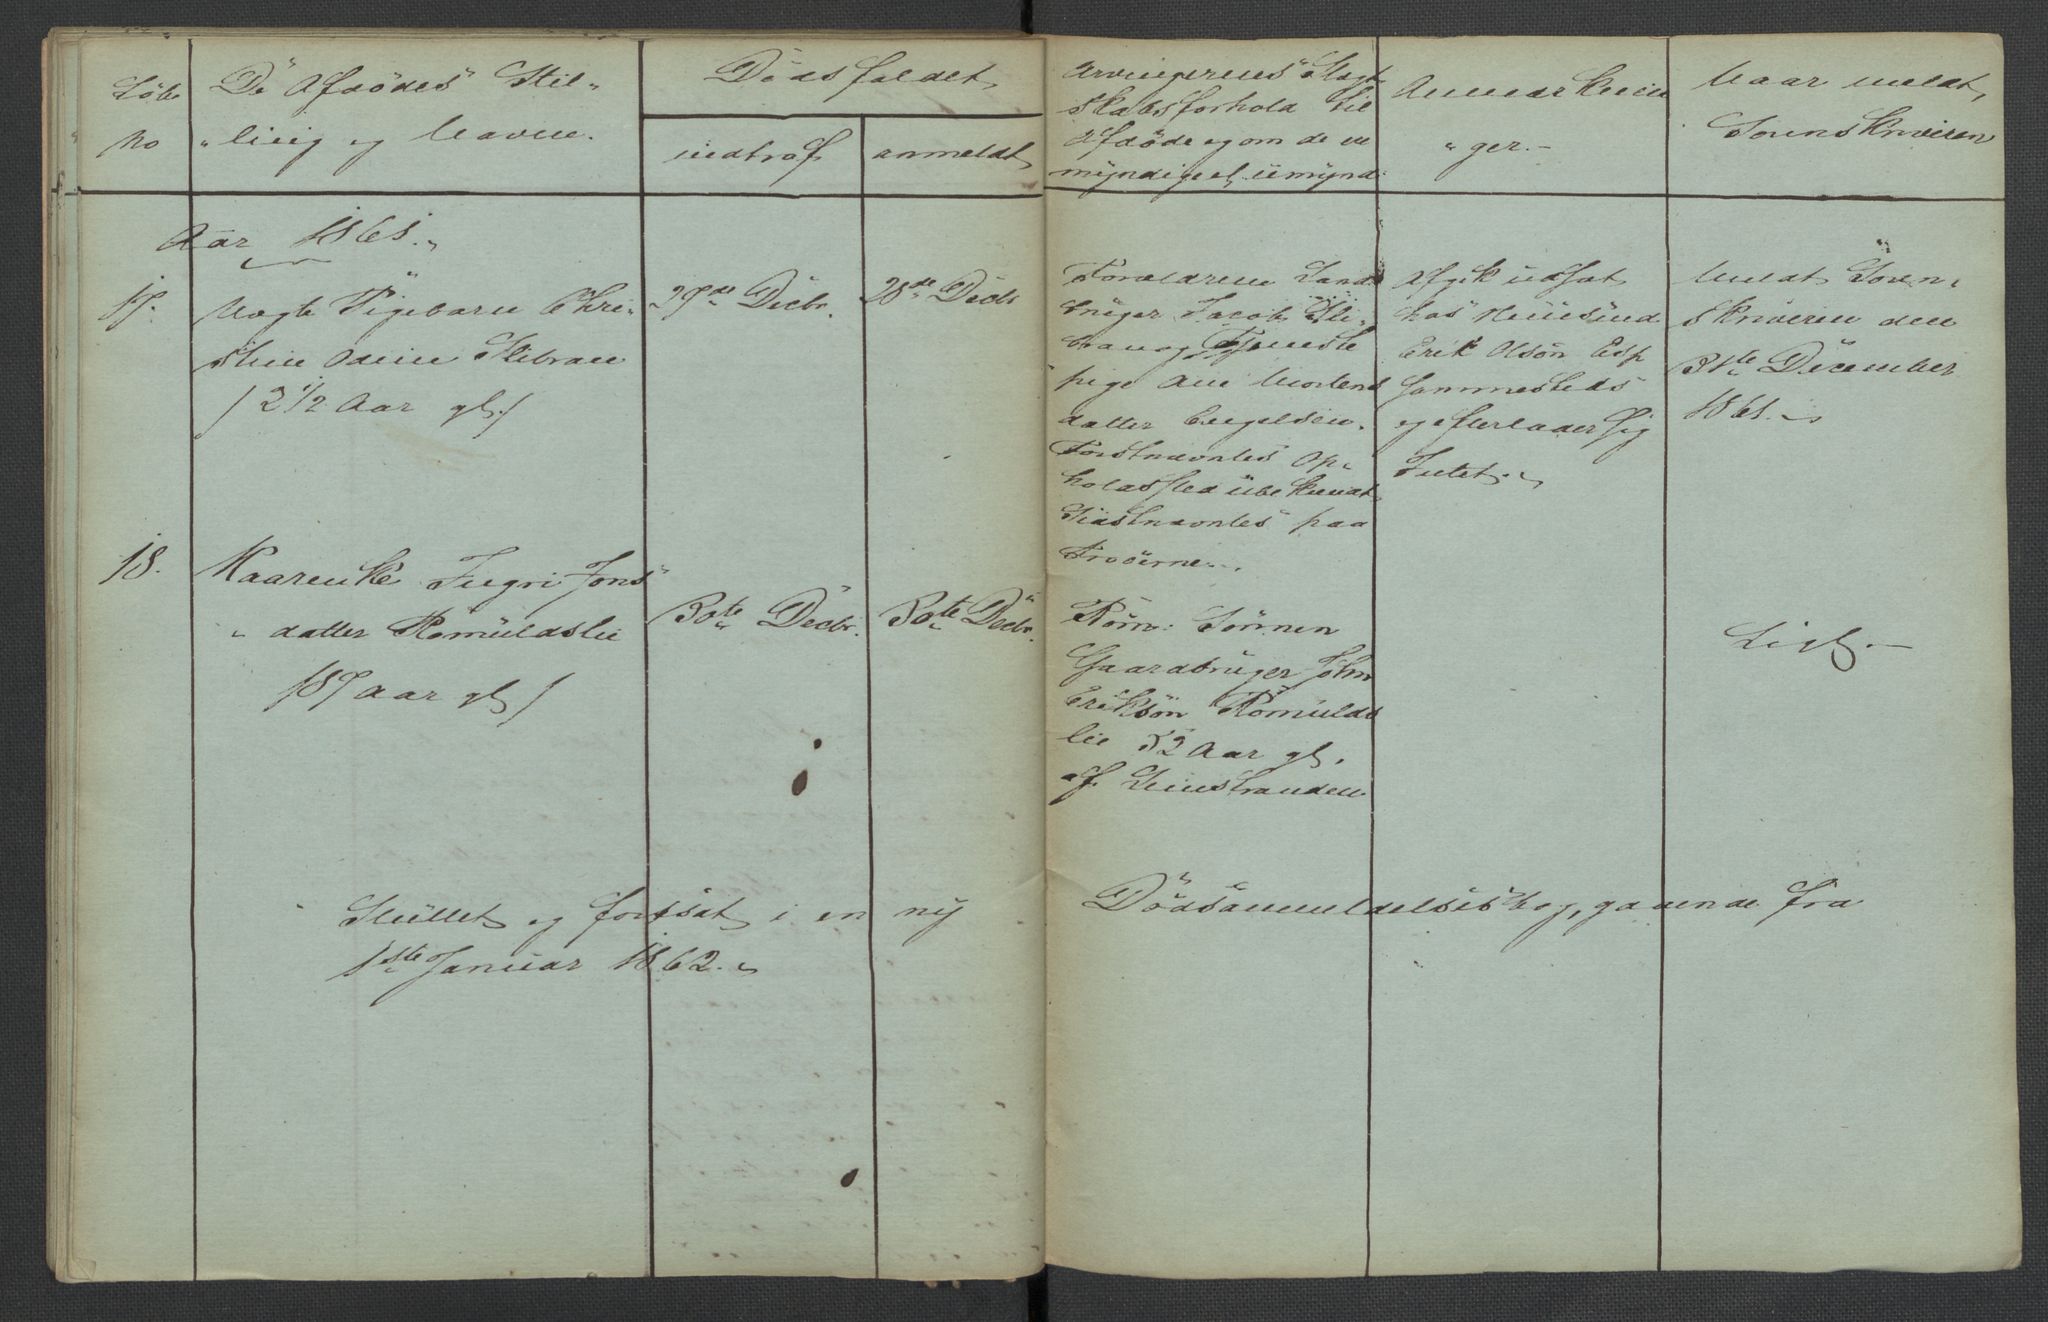 Löbe
No
De Afdödes Stil-
"ling og Navne.
Dödsfaldet
indtraf
anmeldt
Arvingernes Slægt
skabsforhold til
Afdöde og om de ere
myndige el. umynd:
Anmærknin
"ger.-
Naar meldt
Sorenskriveren
Aar 1861.
17.
Uægte Pigebarn Chri-
stine
/ 2 1/2 Aar gl. /
27de Decbr.
28de Decbr
Forældrene Land
Jacob
og Tjeneste
pige Ane
datter Engelsen.
Förstnævntes Op-
holdssted übekiendt
Sidstnævntes paa
Afgik udsat
hos Huusmd
Erik Olsön Esp
sammesteds
og efterlader sig
Intet.
Meldt Soren-
skriveren den
31te December
1861.
18.
Kaarenke Ingri Jons
"datter Romüldslie
/ 87 Aar gl /
30te Decbr.
30te Decbr.
Rom: Sönnen
Gaardbrüger John
Eriksön Romülds
lie 52 Aar gl.
af Leinstranden
Ligl.-
Slüttet og fortsat i en ny Dödsanmeldelsesbog, gaaende fra
1ste Januar 1862.